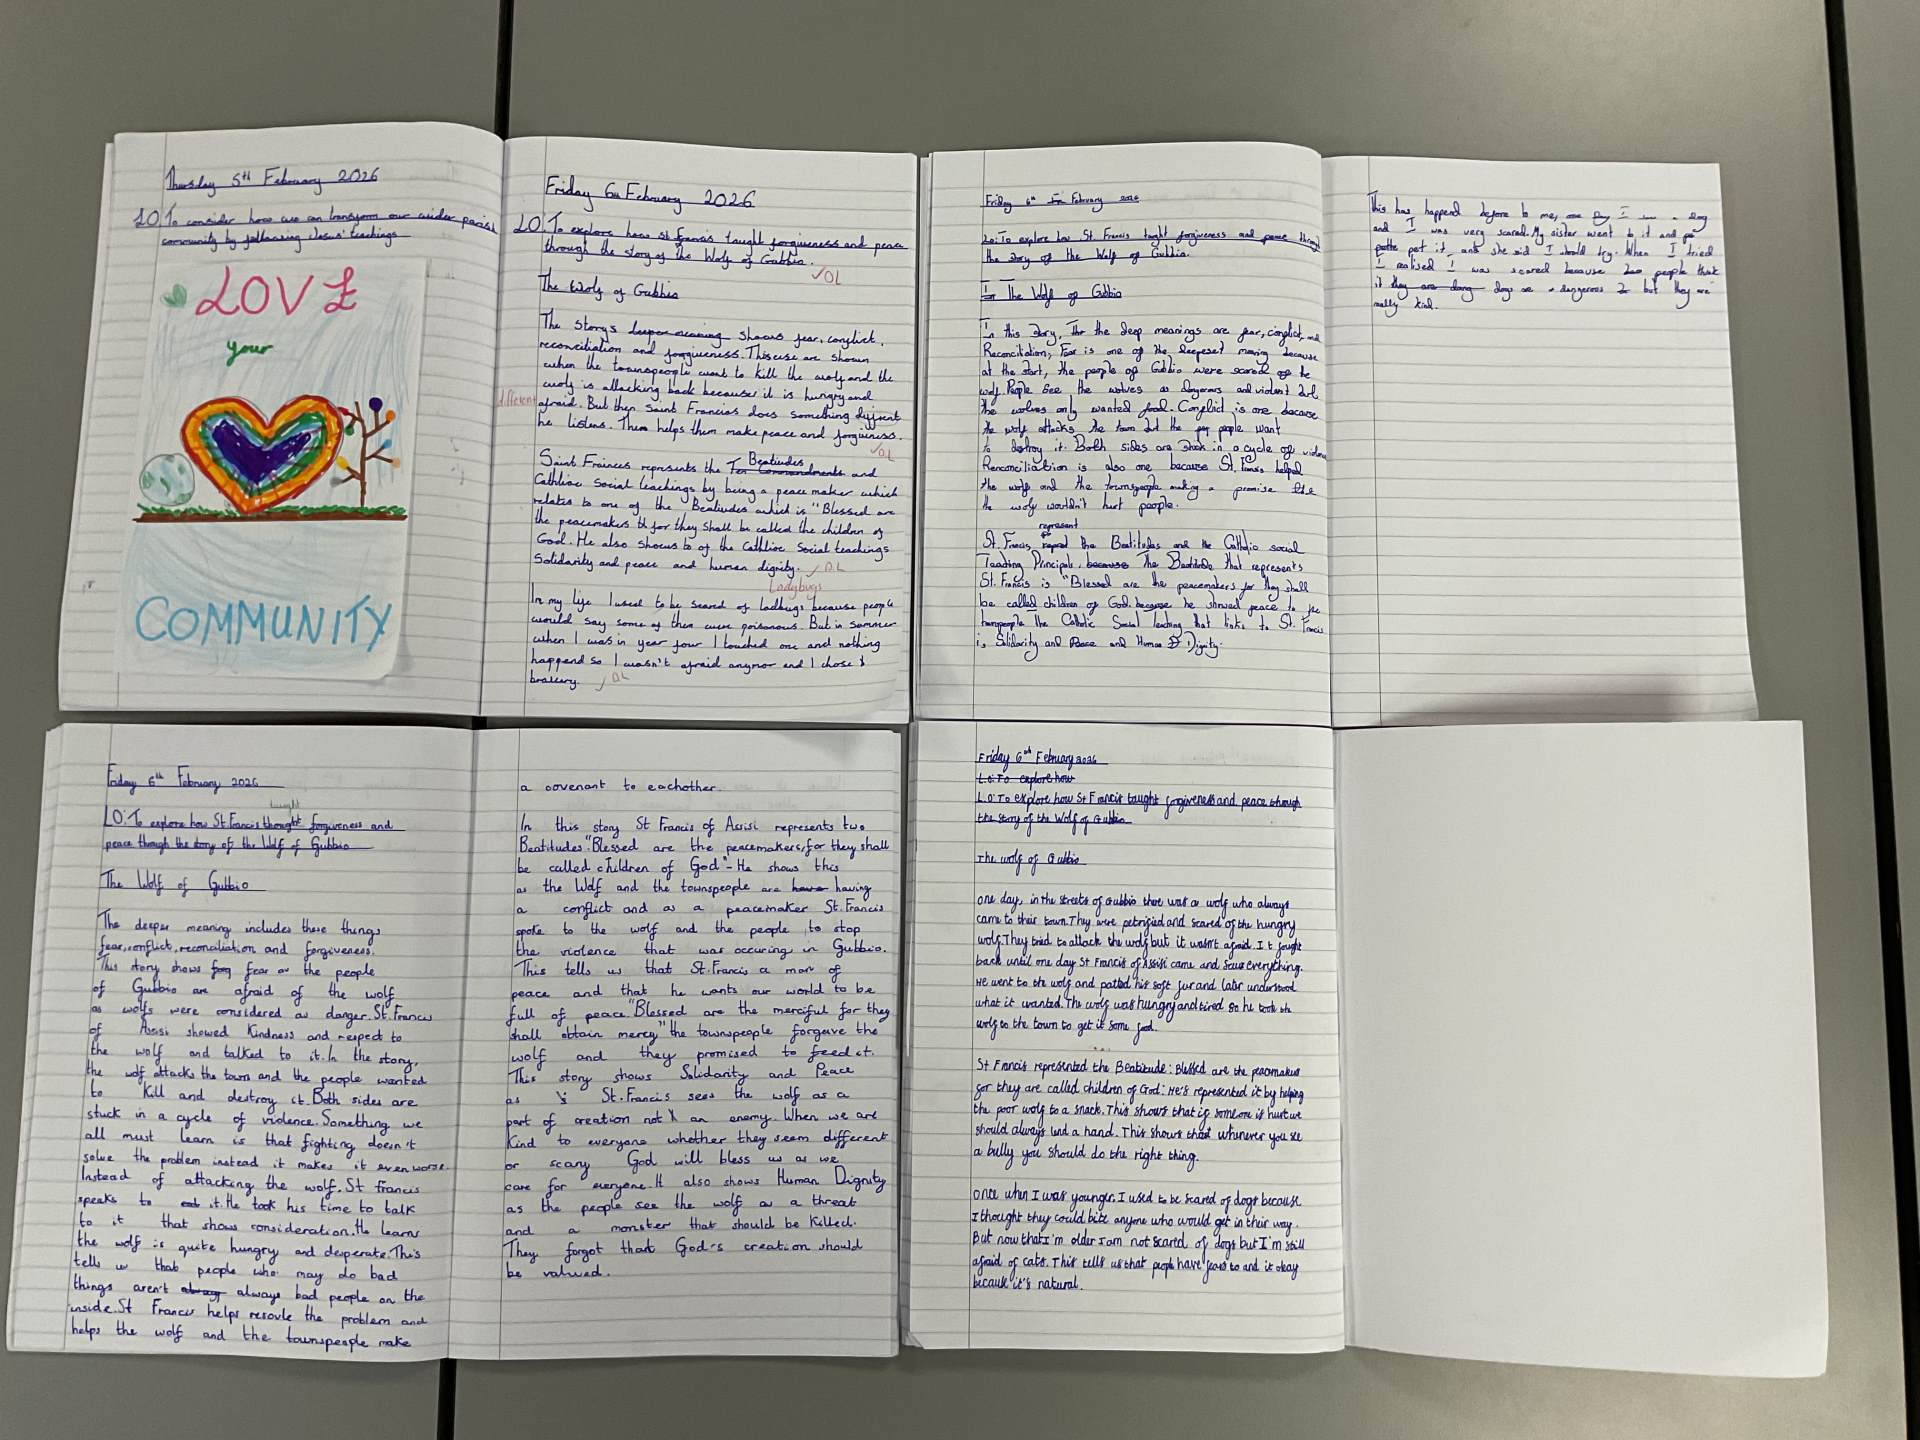 Thursday 5th February 2026
LO To consider how we can transform our wider parish
community by following Jesus' teachings
LOVE
your
COMMUNITY
Friday 6th February 2026
LO To explore how St Francis taught forgiveness and peace
through the story of the Wolf of Gubbio.
✓OL
The Wolf of Gubbio
The storys deeper meaning shows fear, conflict,
reconciliation and forgiveness. These are shown
when the townspeople want to kill the wolf and the
wolf is attacking back because it is hungry and
different
afraid. But then Saint Francias does something diffrent
he listens. Then helps them make peace and forgiveness.
✓OL
Beatiudes
Saint Frainces represents the Ten Commandments and
Cathlioc Social teachings by being a peace maker which
relates to one of the Beatiudes which is "Blessed are
the peacemakers for they shall be called the children of
God. He also shows to of the Cathlioc Social teachings
Solidarity and peace and human dignity. ✓OL
Ladybugs
In my life I used to be scared of ladbugs because people
would say some of them were poisonous. But in summer
when I was in year four I touched one and nothing
happend so I wasn't afraid anymor and I chose
bravery. ✓OL
Friday 6th February 2026
Lo: To explore how St. Francis taught forgiveness and peace through
the story of the Wolf of Gubbio.
The Wolf of Gubbio
In this story, the deep meanings are fear, conflict, and
Reconcitation, Fear is one of the deepeset maning because
at the start, the people of Gubbio were scared of the
wolf. People see the wolves as dangerous and violent but
the wolves only wanted food. Conflict is one because
the wolf attacks the town but the people want
to destroy it. Both sides are stuck in a cycle of violence
Reconciliation is also one because St. Francis helped
the wolf and the townspeople making a promise
the wolf wouldn't hurt people.
represent
St. Francis the Beatitudes and the Catholic social
Teaching Principals, because The Beatitude that represents
St. Francis is "Blessed are the peacemakers for they shall
be called children of God. because he showed peace to
townpeople the Catholic Social teaching that links to St. Francis
is Solidarity and Peace and Human Dignity.
This has happend before to me, one day I saw a dog
and I was very scared. My sister went to it and
pet it, and she said I should try. When I tried
I realised I was scared because people think
dogs are dangerous but they are
really kind.
Friday 6th February 2026
taught
LO: To explore how St. Francis thought forgiveness and
peace through the story of the Wolf of Gubbio
The Wolf of Gubbio
The deeper meaning includes these things
fear, conflict, reconaliation and forgiveness.
This story shows fear as the people
of Gubbio are afraid of the wolf
as wolfs were considered as danger. St. Francis
of Assisi showed kindness and respect to
the wolf and talked to it. In the story,
the wolf attacks the town and the people wanted
to kill and destroy it. Both sides are
stuck in a cycle of violence. Something we
all must learn is that fighting doesn't
solve the problem instead it makes it even worse.
Instead of attacking the wolf, St Francis
speaks to it. He took his time to talk
to it that shows consideration. He learns
the wolf is quite hungry and desperate. This
tells us that people who may do bad
things aren't always bad people on the
inside. St Francis helps resovle the problem and
helps the wolf and the townspeople make
a covenant to eachother.
In this story St Francis of Assisi represents two
Beatitudes. "Blessed are the peacemakers, for they shall
be called children of God" - He shows this
as the Wolf and the townspeople are having
a conflict and as a peacemaker St. Francis
spoke to the wolf and the people to stop
the violence that was occuring in Gubbio.
This tells us that St. Francis a man of
peace and that he wants our world to be
full of peace. "Blessed are the merciful for they
shall obtain mercy," the townspeople forgave the
wolf and they promised to feed it.
This story shows Solidarity and Peace
as St. Francis sees the wolf as a
part of creation not an enemy. When we are
kind to everyone whether they seem different
or scary God will bless us as we
care for everyone. It also shows Human Dignity
as the people see the wolf as a threat
and a monster that should be killed.
They forgot that God's creation should
be valued.
Friday 6th February 2026
L.O: To explore how
L.O: To explore how St Francis taught forgiveness and peace through
the story of the Wolf of Gubbio
The wolf of Gubbio
one day, in the streets of Gubbio there was a wolf who always
came to their town. They were petrified and scared of the hungry
wolf. They tried to attack the wolf but it wasn't afraid. It fought
back until one day St Francis of Assisi came and saw everything.
He went to the wolf and patted his soft fur and later understood
what it wanted. The wolf was hungry and tired so he took the
wolf to the town to get it some food.
St Francis represented the Beatitude: Blessed are the peacemakers
for they are called children of God. He's represented it by helping
the poor wolf to a snack. This shows that if someone is hurt we
should always lend a hand. This shows that whenever you see
a bully you should do the right thing.
once when I was younger, I used to be scared of dogs because
I thought they could bite anyone who would get in their way.
But now that I'm older I am not scared of dogs but I'm still
afraid of cats. This tells us that people have fears to and it okay
because it's natural.